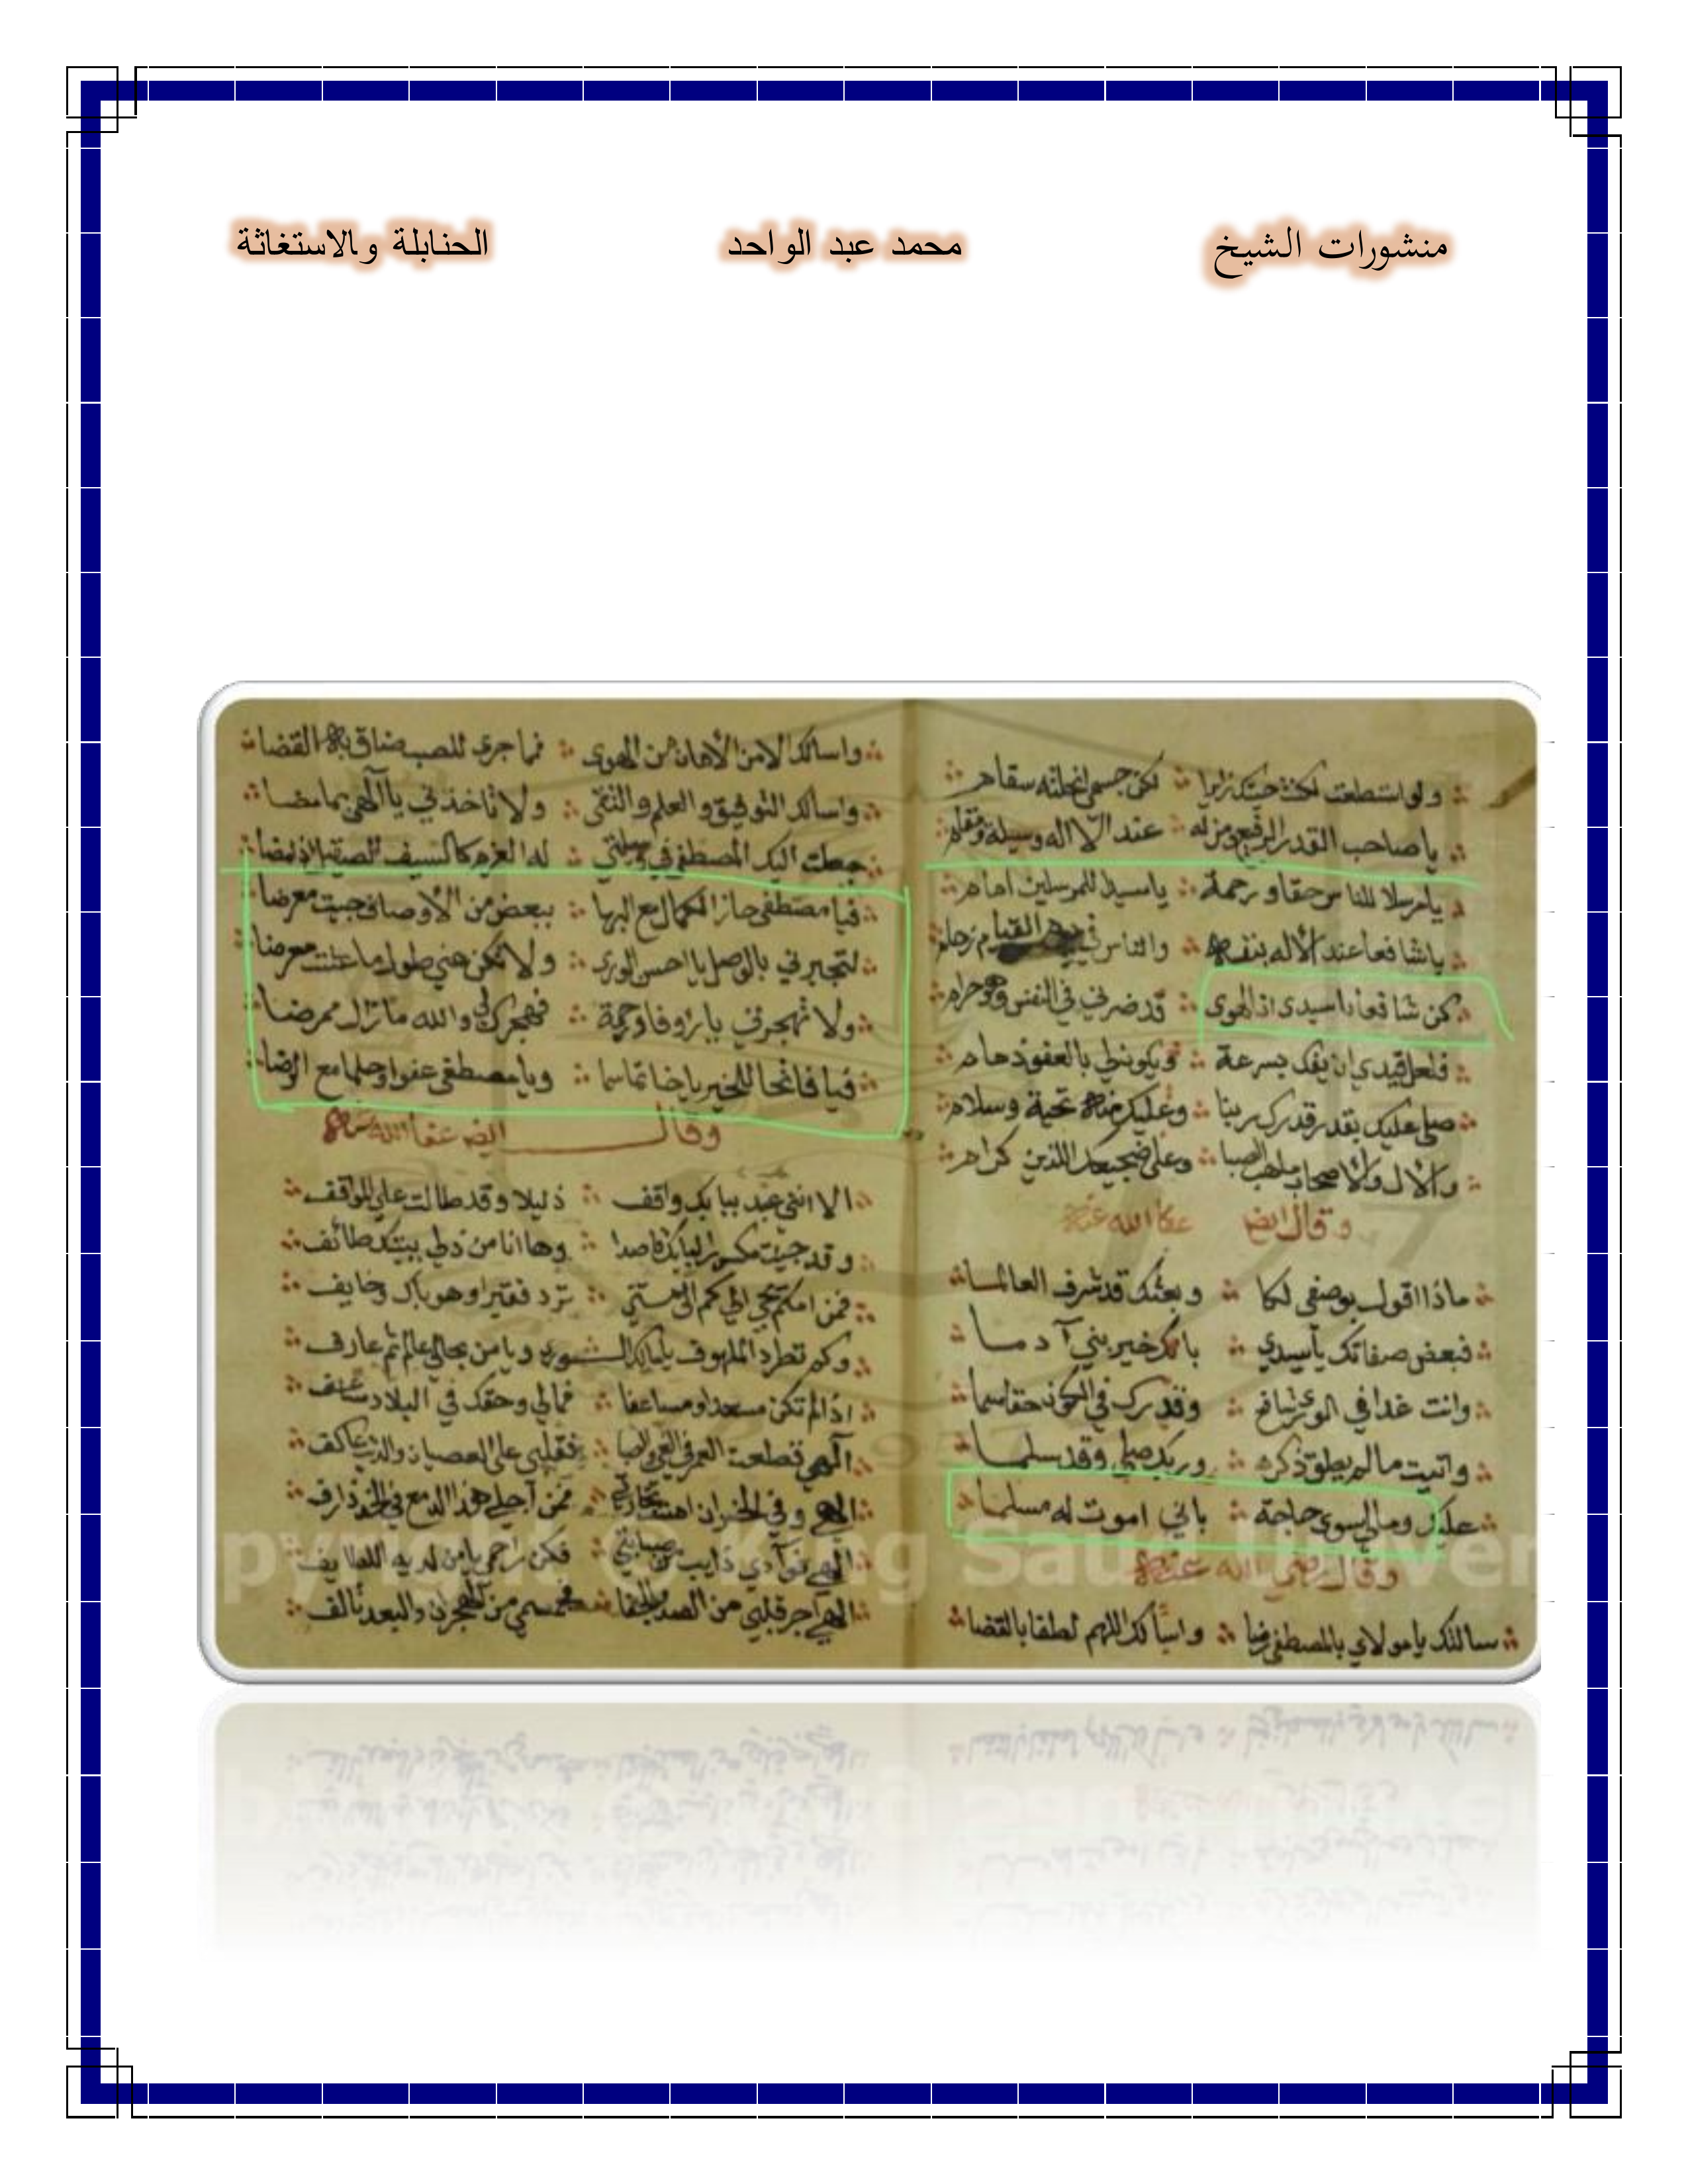 منشورات الشيخ محمد عبد الواحد الحنابلة والاستغاثة
ولو استطعت لكنت جيتك زايرا لكن جسمي انحلته سقام
يا صاحب القدر الرفيع ومن له عند الاله وسيلة ومقام
يا مرسلا للناس حقا ورحمة يا سيدا للمرسلين امام
يا شافعا عند الاله بنفسه والناس في القيام زحام
كن شافعا يا سيدي اذ الهوى قد ضرني في النفس وهو حرام
فلعل قيدي ان يفك بسرعة ويكون لي بالعفو
صلى عليك بقدر قدرك ربنا وعليك منه تحية وسلام
والال والاصحاب ما هب الصبا وعلى ضجيعيك الذين كرام
وقال ايض عفا الله عنه
ماذا اقول بوصفي لكا وبعثك قد شرف العالما
فبعض صفاتك يا سيدي بانك خير بني آدما
وانت غدا في الورى شافع وقدرك في الكون حقا سما
واتيت ما لم يطق ذكره وربك صلى وقد سلما
عليك ومالي سوى حاجة باني اموت له مسلما
وقال رضي الله عنه
سالتك يا مولاي بالمصطفى رضا واسالك اللهم لطفا بالقضا
واسالك الامن الامان من الهوى فما جرى للصب ضاق به القضا
واسالك التوفيق والعلم والتقى ولا تاخذني يا آلهي بما مضا
جعلت اليك المصطفى في وسيلتي له العزم كالسيف الصقيل اذ امضا
فيا مصطفى حاز الكمال مع البها ببعض من الاوصاف جيت معرضا
لتجبرني بالوصل يا احسن الورى ولا تكن عني طول ما عشت معرضا
ولا تهجرني يا رؤفا ورحمة فهجرك لي والله ما زال ممرضا
فيا فاتحا للخير يا خاتما سما ويا مصطفى عفوا وحلما مع الرضا
وقال ايض عفا الله عنه
الا انني عبد ببابك واقف ذليلا وقد طالت علي المواقف
وقد جيت مكسرا لبابك قاصدا وها انا من ذلي ببيتك طائف
فمن امكم يرد فقيرا وهو باك وخايف
وكم تطرد الملهوف ويا من بحالي عالم ثم عارف
اذا لم تكن مسعدا ومساعفا فمالي وحقك في البلاد
آلهي قطعت العمر في الغي والصبا فقلبي على العصيان والذنب عاكف
الهي وفي الخسران فمن آجل هذا الدمع في الخد ذارف
الهي فوآدي ذايب من صبابتي فكن راحمي يا من لديه اللطايف
الهي اجر قلبي من الصد والجفا فجسمي من الهجران والبعد تالف
pyright © King Saud Univer